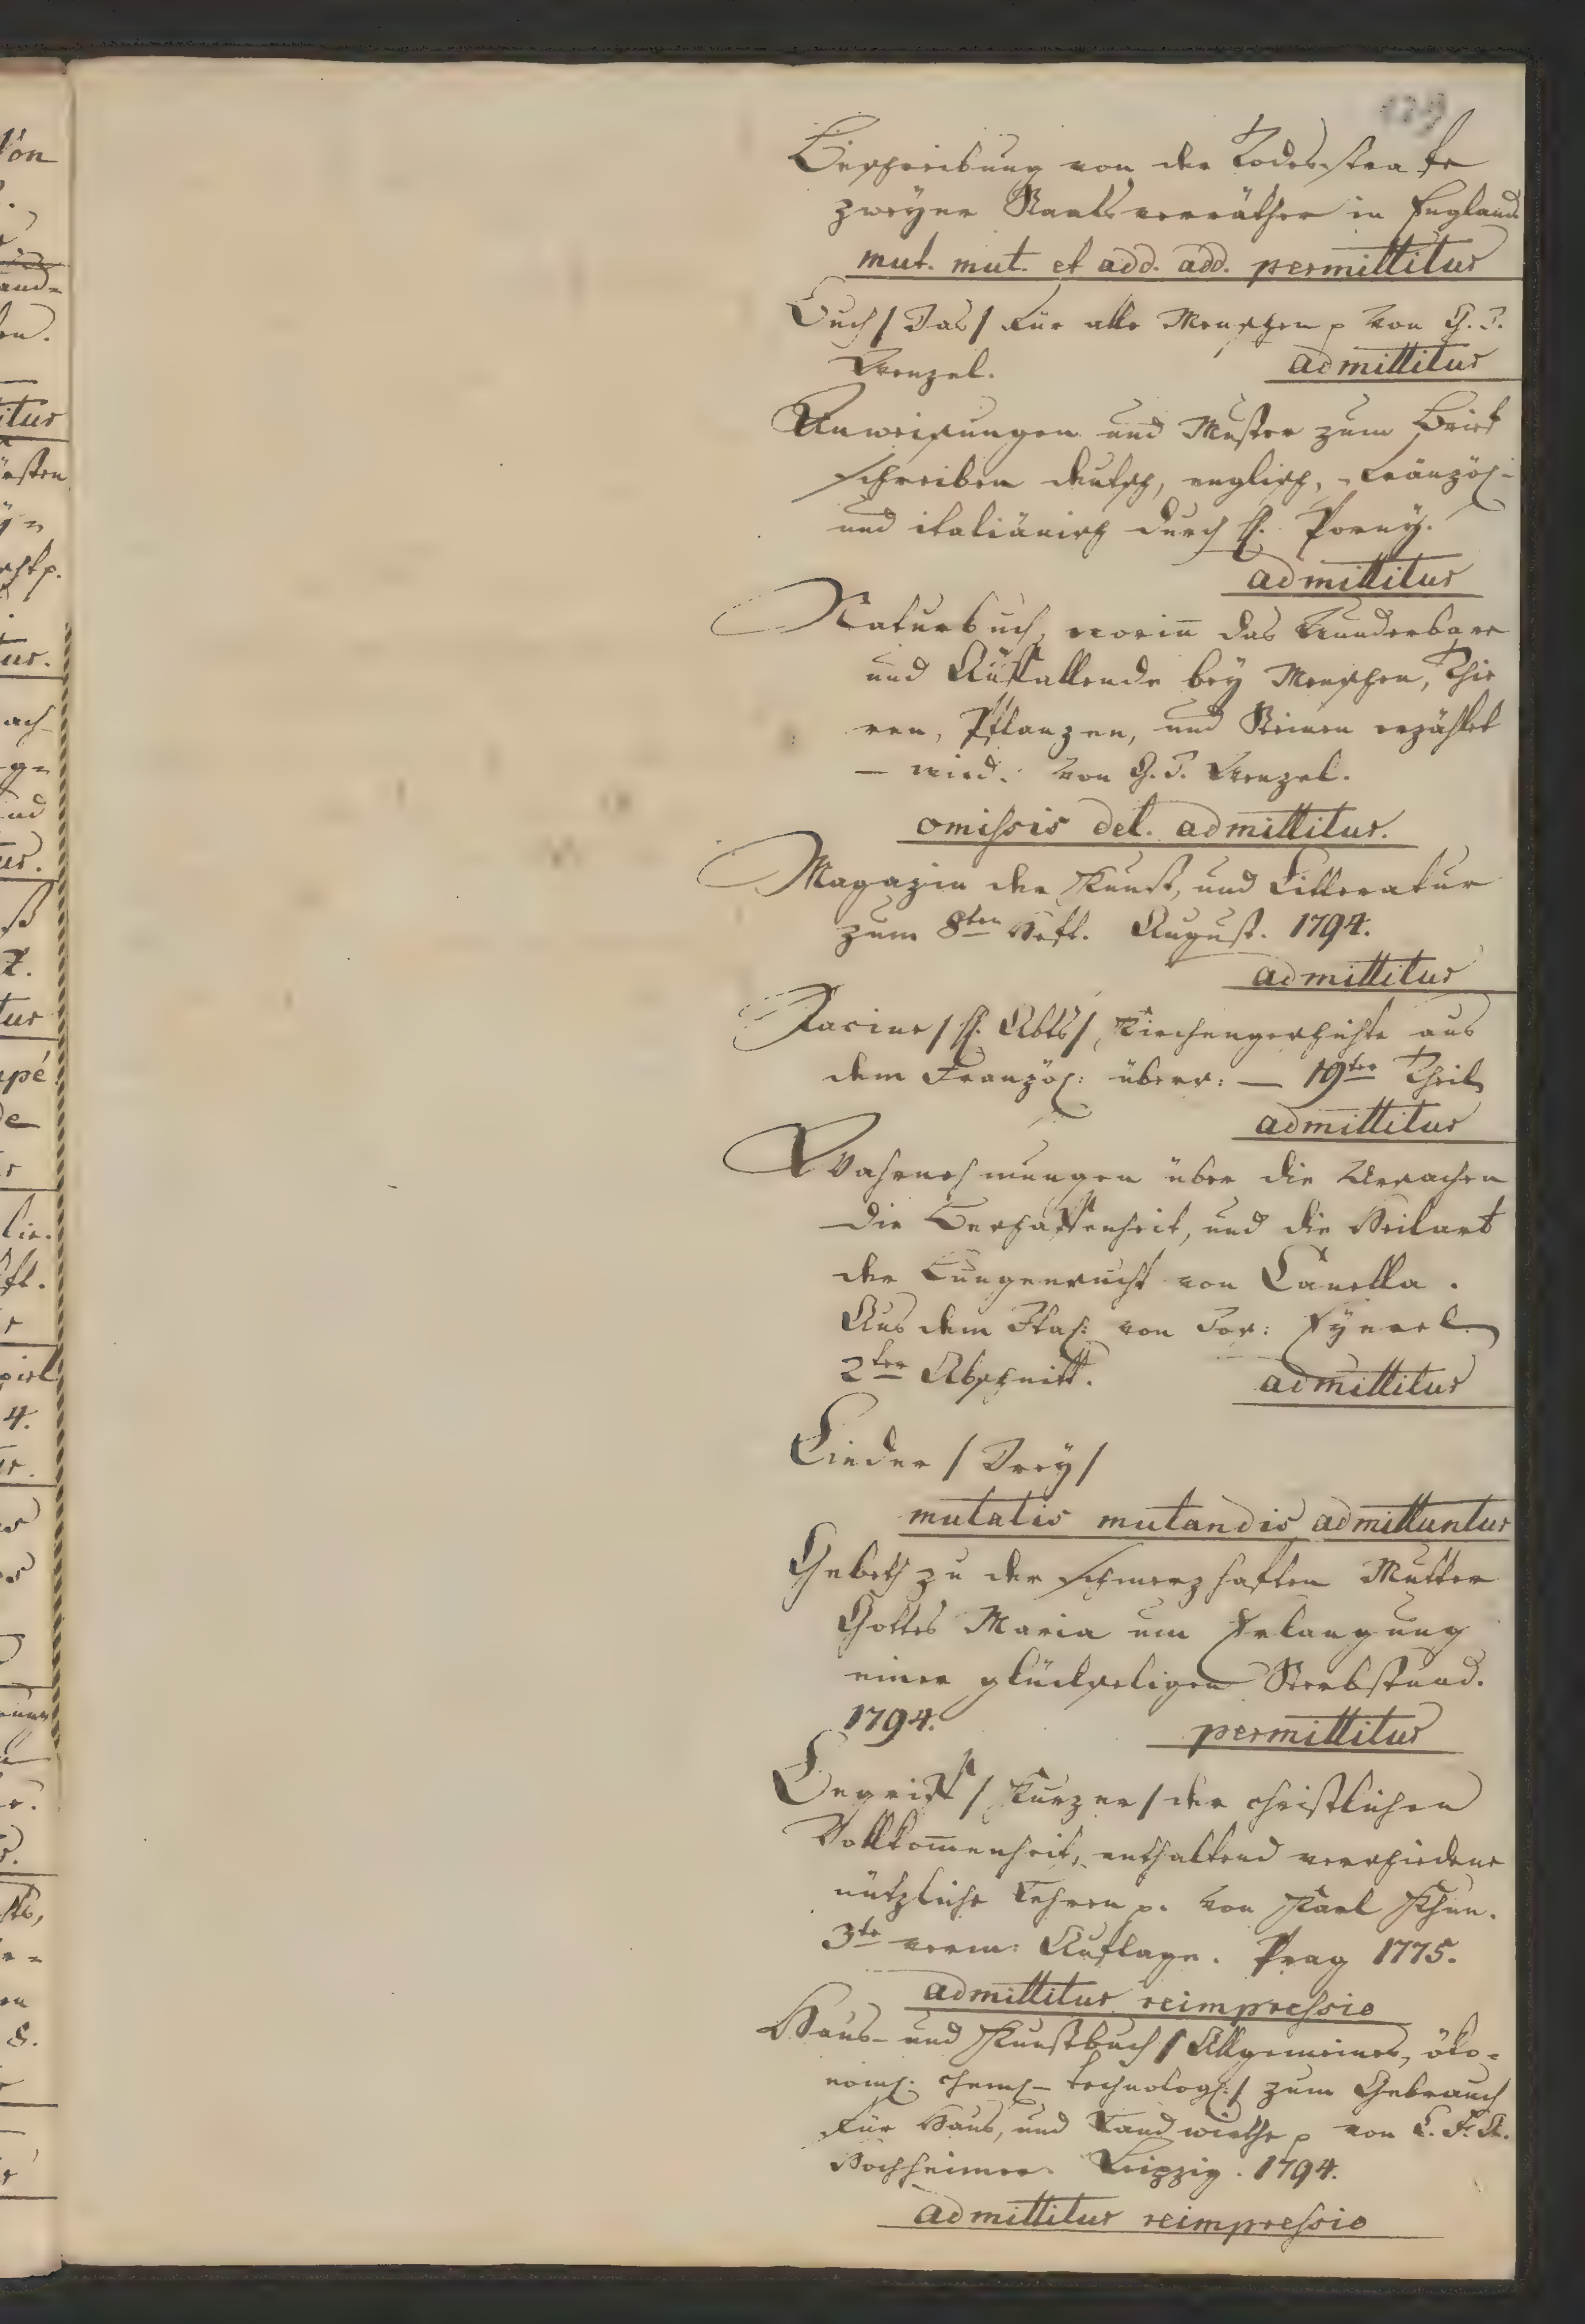 Beschreibung von der Todesstrafe
zweyer Staatsverräther in England
mut. mut. et add. add. permittitur
Buch / Das / für alle Menschen p von G. I.
Wenzel. admittitur
Anweisungen und Muster zum Brief
schreiben deutsch, englisch, französ:
und italiänisch durch H. Porny.
admittitur
Naturbuch, worin̄ das Wunderbare
und Auffallende bey Menschen, Thie
ren, Pflanzen, und Steinen erzählet
– wird. von G. I. Wenzel.
omissis del. admittitur.
Magazin der Kunst, und Litteratur
zum 8ten Heft. August. 1794.
admittitur
Racine / H. Abts /, Kirchengeschichte aus
dem Französ: übers: — 19ter Theil
admittitur
Wahrnehmungen über die Ursachen
die Beschaffenheit, und die Heilart
der Lungensucht von Canella.
Aus dem Ital: von Jos: Eyerel
2ter Abschnitt. admittitur
Lieder / Drey /
mutatis mutandis admittuntur
Gebeth zu der schmerzhaften Mutter
Gottes Maria um Erlangung
einer glückseligen Sterbstund.
1794. permittitur
Begriff / Kurzer / der christlichen
Vollkom̄enheit, enthaltend verschiedene
nützliche Lehren p. von Karl Khun.
3te verm: Auflage. Prag 1775.
admittitur reimpressio
Haus- und Kunstbuch / Allgemeines, öko-
nom: chem– technolog: / zum Gebrauch
für Haus, und Landwirthe p von C. F. A.
Hochheimer. Leipzig. 1794.
admittitur reimpressio